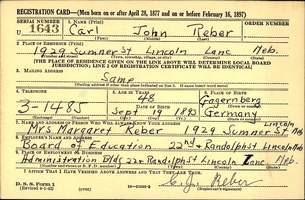 REGISTRATION CARD—(Men born on or after April 28, 1877 and on or before February 16, 1897)
SERIAL NUMBER 1. NAME (Print)
1643 Carl John Reber
2. PLACE OF RESIDENCE (Print)
1929 Sumner St Lincoln Lanc Neb.
[THE PLACE OF RESIDENCE GIVEN ON THE LINE ABOVE WILL DETERMINE LOCAL BOARD
JURISDICTION; LINE 2 OF REGISTRATION CERTIFICATE WILL BE IDENTICAL]
3. MAILING ADDRESS
Same
4. TELEPHONE 5. AGE IN YEARS 6. PLACE OF BIRTH
48
3-1485 Sept 1893 Germany
Mrs Margaret Reber 1929 Sumner St Lincoln Neb
8. EMPLOYER'S NAME AND ADDRESS
Board of Education 22nd + Randolph St Lincoln Neb
9. PLACE OF EMPLOYMENT OR BUSINESS
Administration Bldg 22 + Randolph St Lincoln Lanc Neb.
I AFFIRM THAT I HAVE VERIFIED ABOVE ANSWERS AND THAT THEY ARE TRUE.
D. S. S. Form 1
Reber